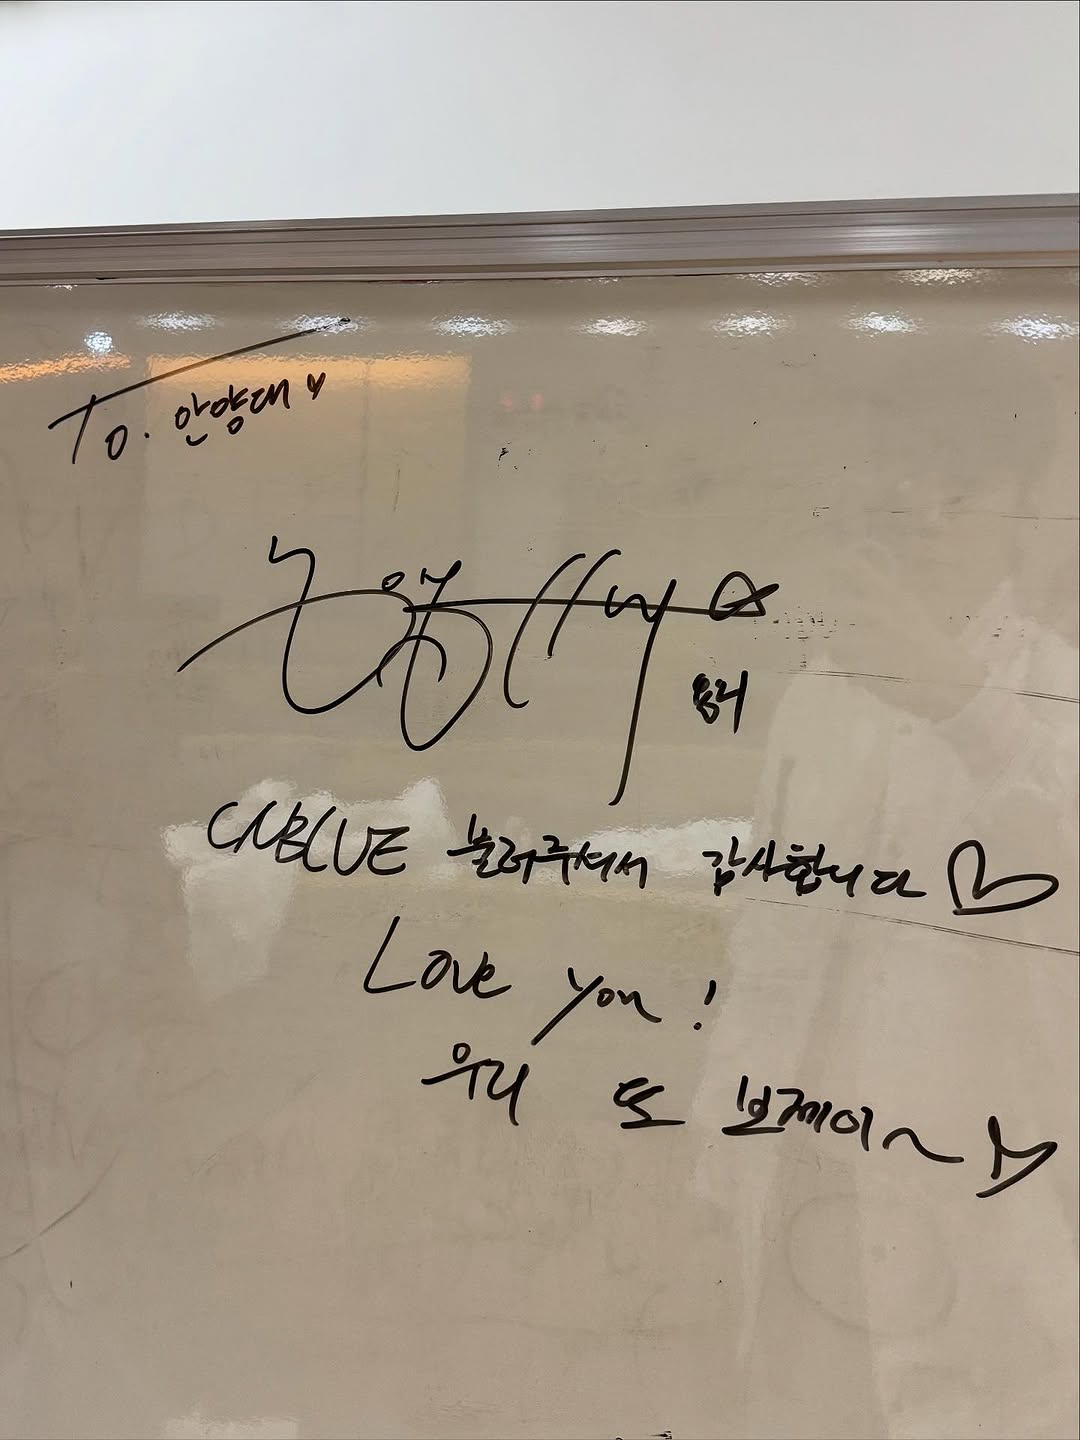 To. 안양대♥
용화
CNBLUE 불러주셔서 감사합니다♡
Love you!
우리 또 보제이~♡